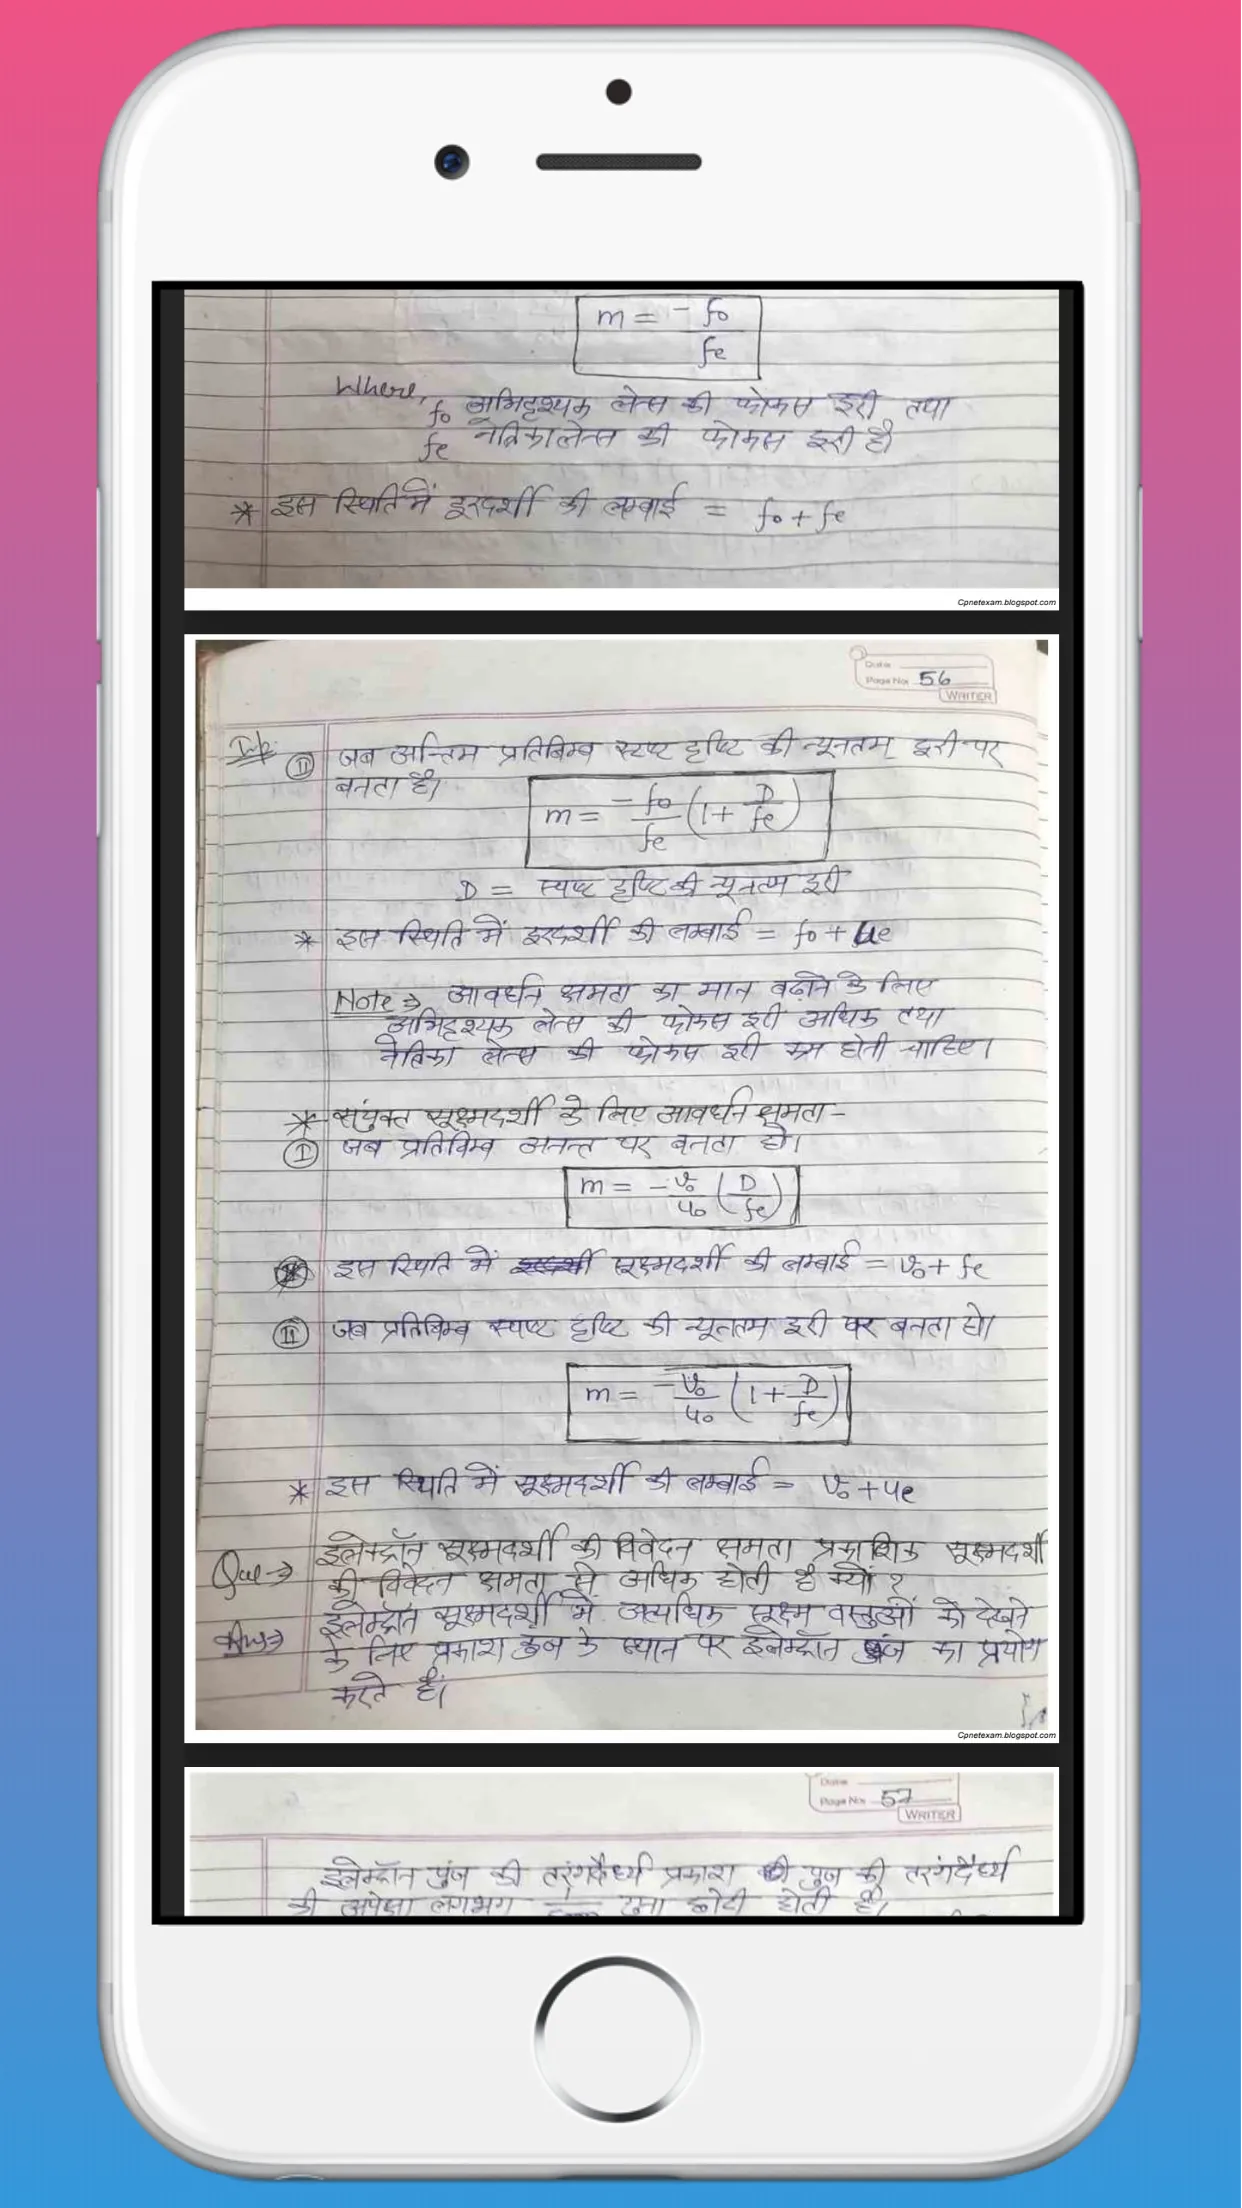 m = - fo/fe
Where,
fo अभिदृश्यक लेन्स की फोकस दूरी तथा
fe नेत्रिका लेन्स की फोकस दूरी है।
* इस स्थिति में दूरदर्शी की लम्बाई = fo + fe
Cpnetexam.blogspot.com
Date
Page No. 56
WRITER
Imp. II जब अन्तिम प्रतिबिम्ब स्पष्ट दृष्टि की न्यूनतम दूरी पर
बनता है।
m = -fo/fe (1 + D/fe)
D = स्पष्ट दृष्टि की न्यूनतम दूरी
* इस स्थिति में दूरदर्शी की लम्बाई = fo + ue
Note ⇒ आवर्धन क्षमता का मान बढ़ाने के लिए
अभिदृश्यक लेन्स की फोकस दूरी अधिक तथा
नेत्रिका लेन्स की फोकस दूरी कम होनी चाहिए।
* संयुक्त सूक्ष्मदर्शी के लिए आवर्धन क्षमता -
I जब प्रतिबिम्ब अनन्त पर बनता हो।
m = -vo/uo (D/fe)
इस स्थिति में सूक्ष्मदर्शी की लम्बाई = vo + fe
II जब प्रतिबिम्ब स्पष्ट दृष्टि की न्यूनतम दूरी पर बनता हो।
m = -vo/uo (1 + D/fe)
* इस स्थिति में सूक्ष्मदर्शी की लम्बाई = vo + ue
Que → इलेक्ट्रॉन सूक्ष्मदर्शी की विवेदन क्षमता प्रकाशिक सूक्ष्मदर्शी
की विवेदन क्षमता से अधिक होती है क्यों ?
Ans → इलेक्ट्रॉन सूक्ष्मदर्शी में अत्यधिक सूक्ष्म वस्तुओं को देखने
के लिए प्रकाश पुंज के स्थान पर इलेक्ट्रॉन पुंज का प्रयोग
करते हैं।
Cpnetexam.blogspot.com
Date
Page No. 57
WRITER
इलेक्ट्रॉन पुंज की तरंगदैर्ध्य प्रकाश की पुंज की तरंगदैर्ध्य
की अपेक्षा लगभग गुना छोटी होती है।